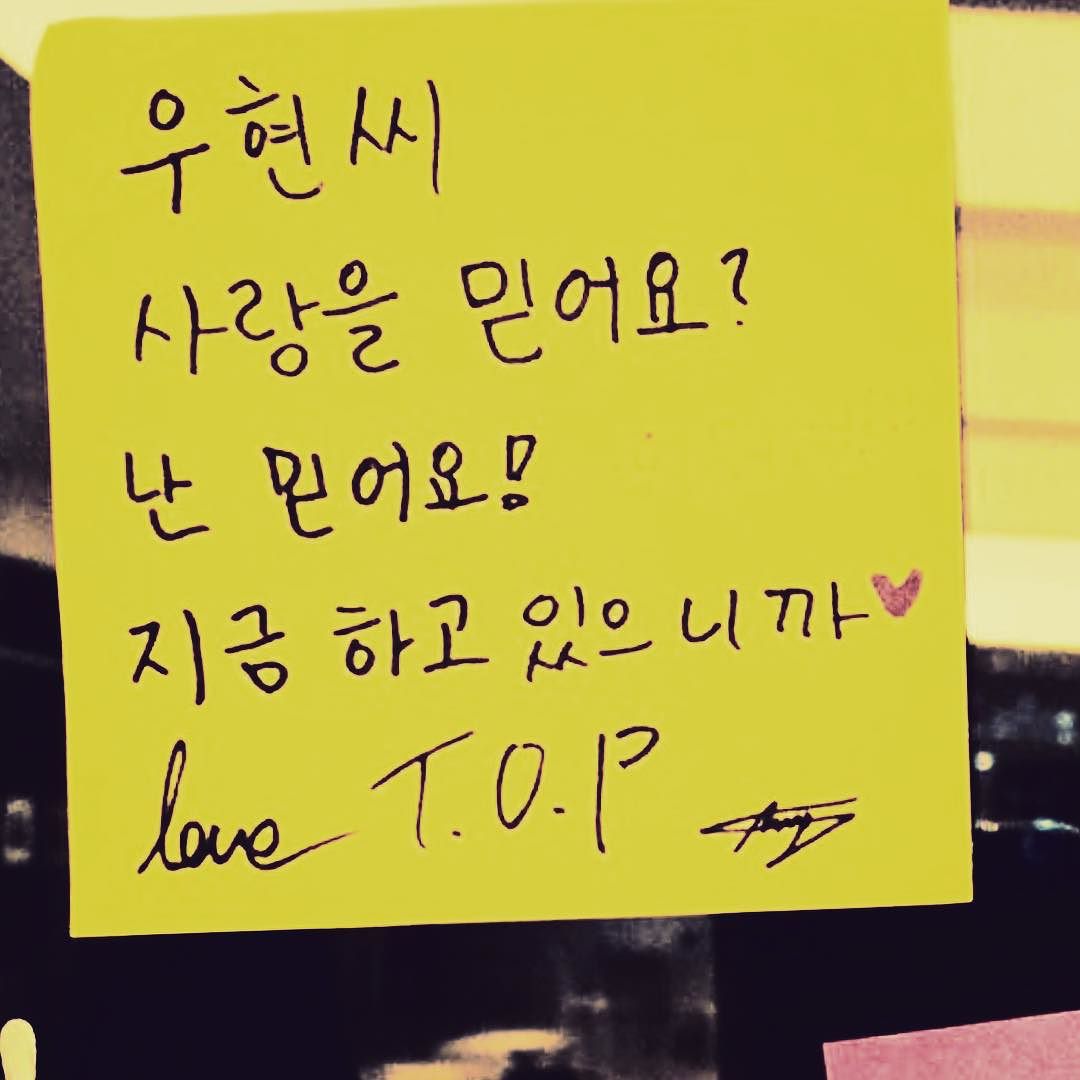 우현씨
사랑을 믿어요?
난 믿어요!
지금 하고 있으니까
love T.O.P